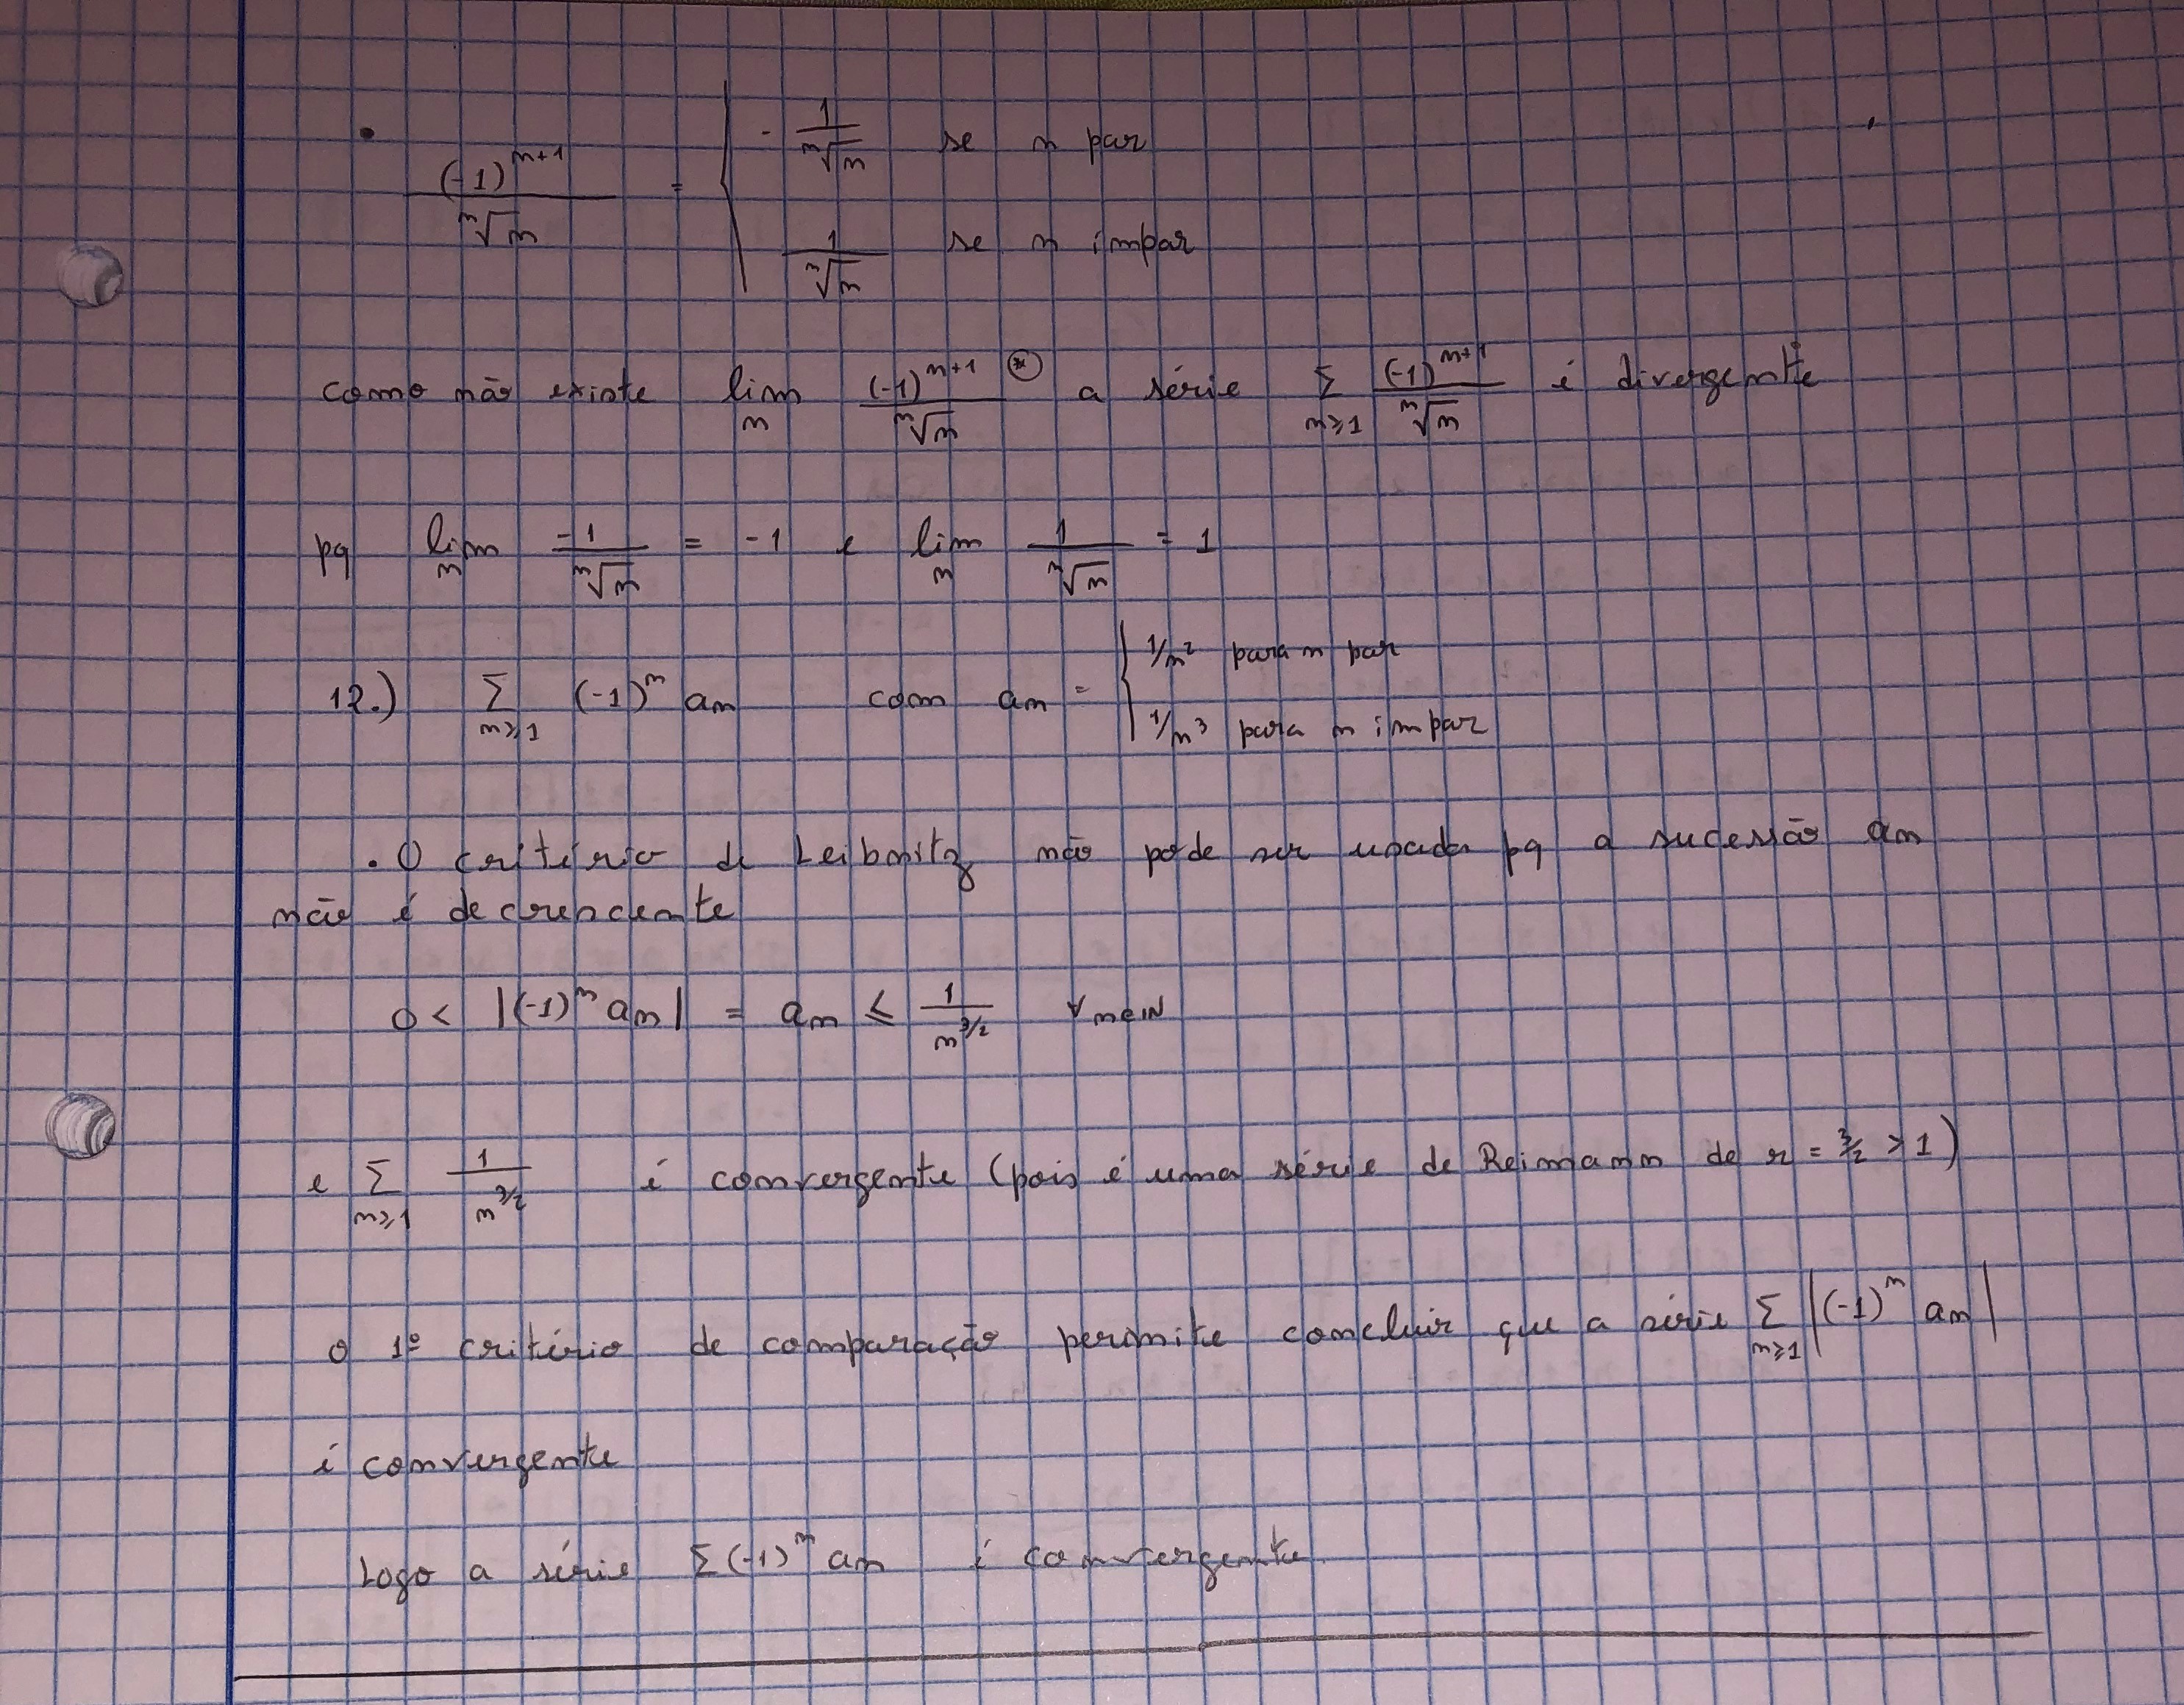 (-1)^{n+1} / ⁿ√n = { - 1/ⁿ√n se n par
1/ⁿ√n se n impar
como não existe lim_n (-1)^{n+1} / ⁿ√n ⊛ a série Σ_{n≥1} (-1)^{n+1} / ⁿ√n é divergente
pq lim_n -1/ⁿ√n = -1 e lim_n 1/ⁿ√n = 1
12.) Σ_{n≥1} (-1)^n an com an = { 1/n² para n par
1/n³ para n impar
. O critério de Leibnitz não pode ser usada pq a sucessão an
não é decrescente
0 < |(-1)^n an| = an ≤ 1/n^{3/2} ∀ n∈IN
e Σ_{n≥1} 1/n^{3/2} é convergente (pois é uma série de Reimann de r = 3/2 > 1)
o 1º critério de comparação permite concluir que a série Σ_{n≥1} |(-1)^n an|
é convergente
Logo a série Σ(-1)^n an é convergente.